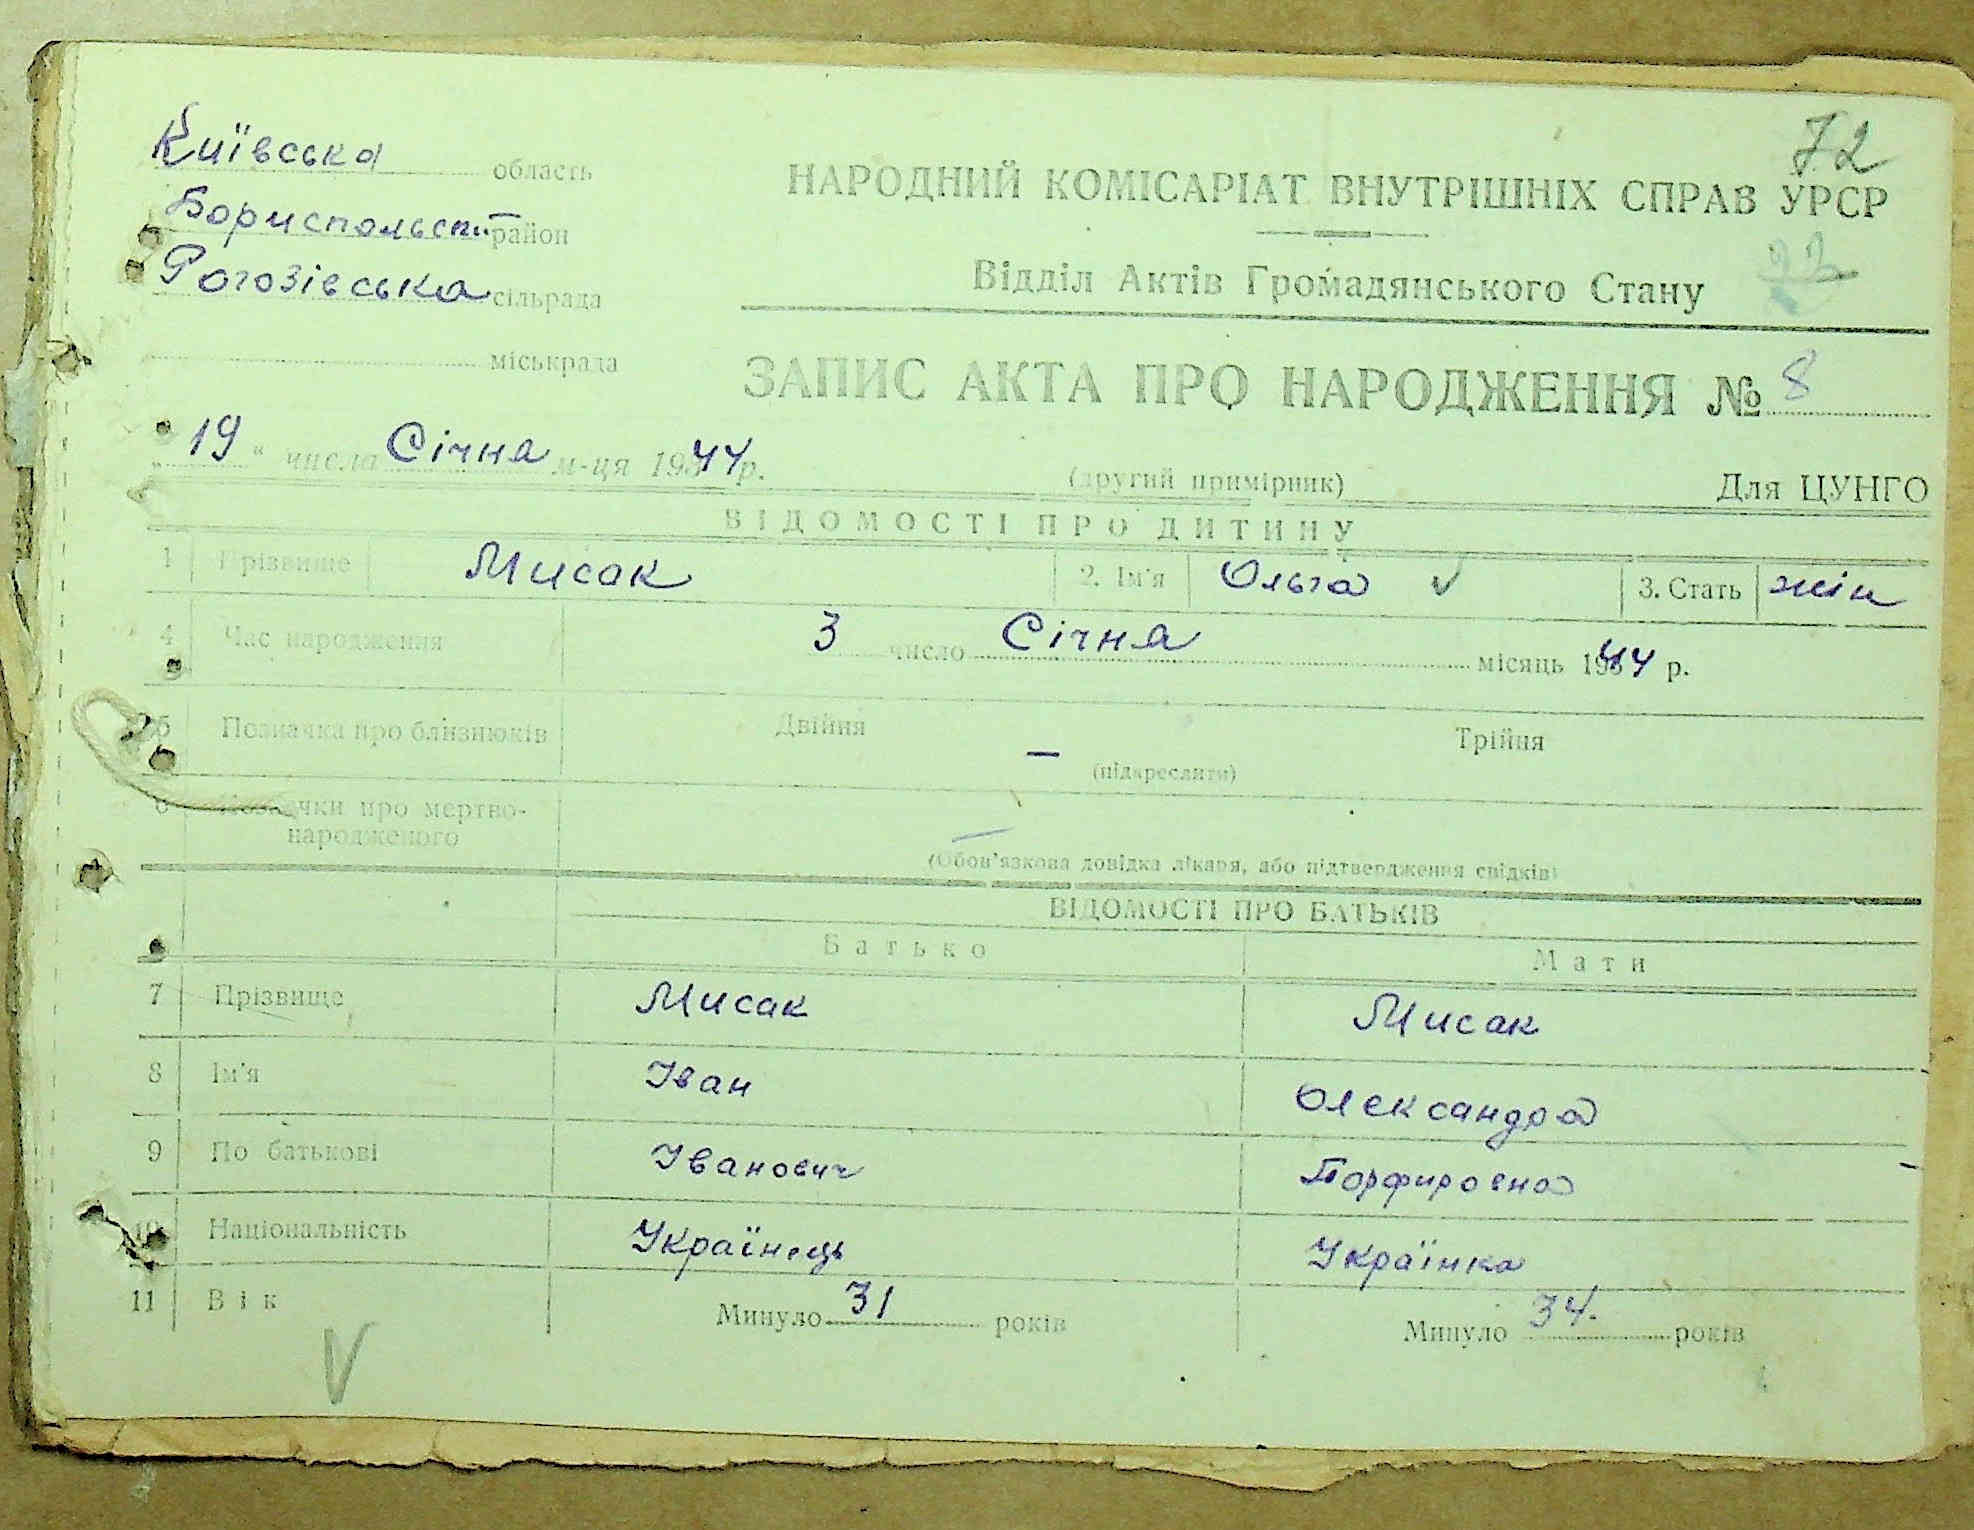 72
Київська область
Бориспольський район
Рогозівська сільрада
міськрада
НАРОДНИЙ КОМІСАРІАТ ВНУТРІШНІХ СПРАВ УРСР
Відділ Актів Громадянського Стану
ЗАПИС АКТА ПРО НАРОДЖЕННЯ № 8
„ 19 “ числа Січня м-ця 1944 р.
(другий примірник)
Для ЦУНГО
ВІДОМОСТІ ПРО ДИТИНУ
1 Прізвище Мисак 2. Ім'я Ольга 3. Стать жін
4 Час народження 3 число Січня місяць 1944 р.
5 Позначка про близнюків Двійня — Трійня
(підкреслити)
6 Позначки про мертво-
народженого —
(Обов'язкова довідка лікаря, або підтвердження свідків)
ВІДОМОСТІ ПРО БАТЬКІВ
Батько Мати
7 Прізвище Мисак Мисак
8 Ім'я Іван Олександра
9 По батькові Іванович Порфировна
10 Національність Українець Українка
11 Вік Минуло 31 років Минуло 34. років